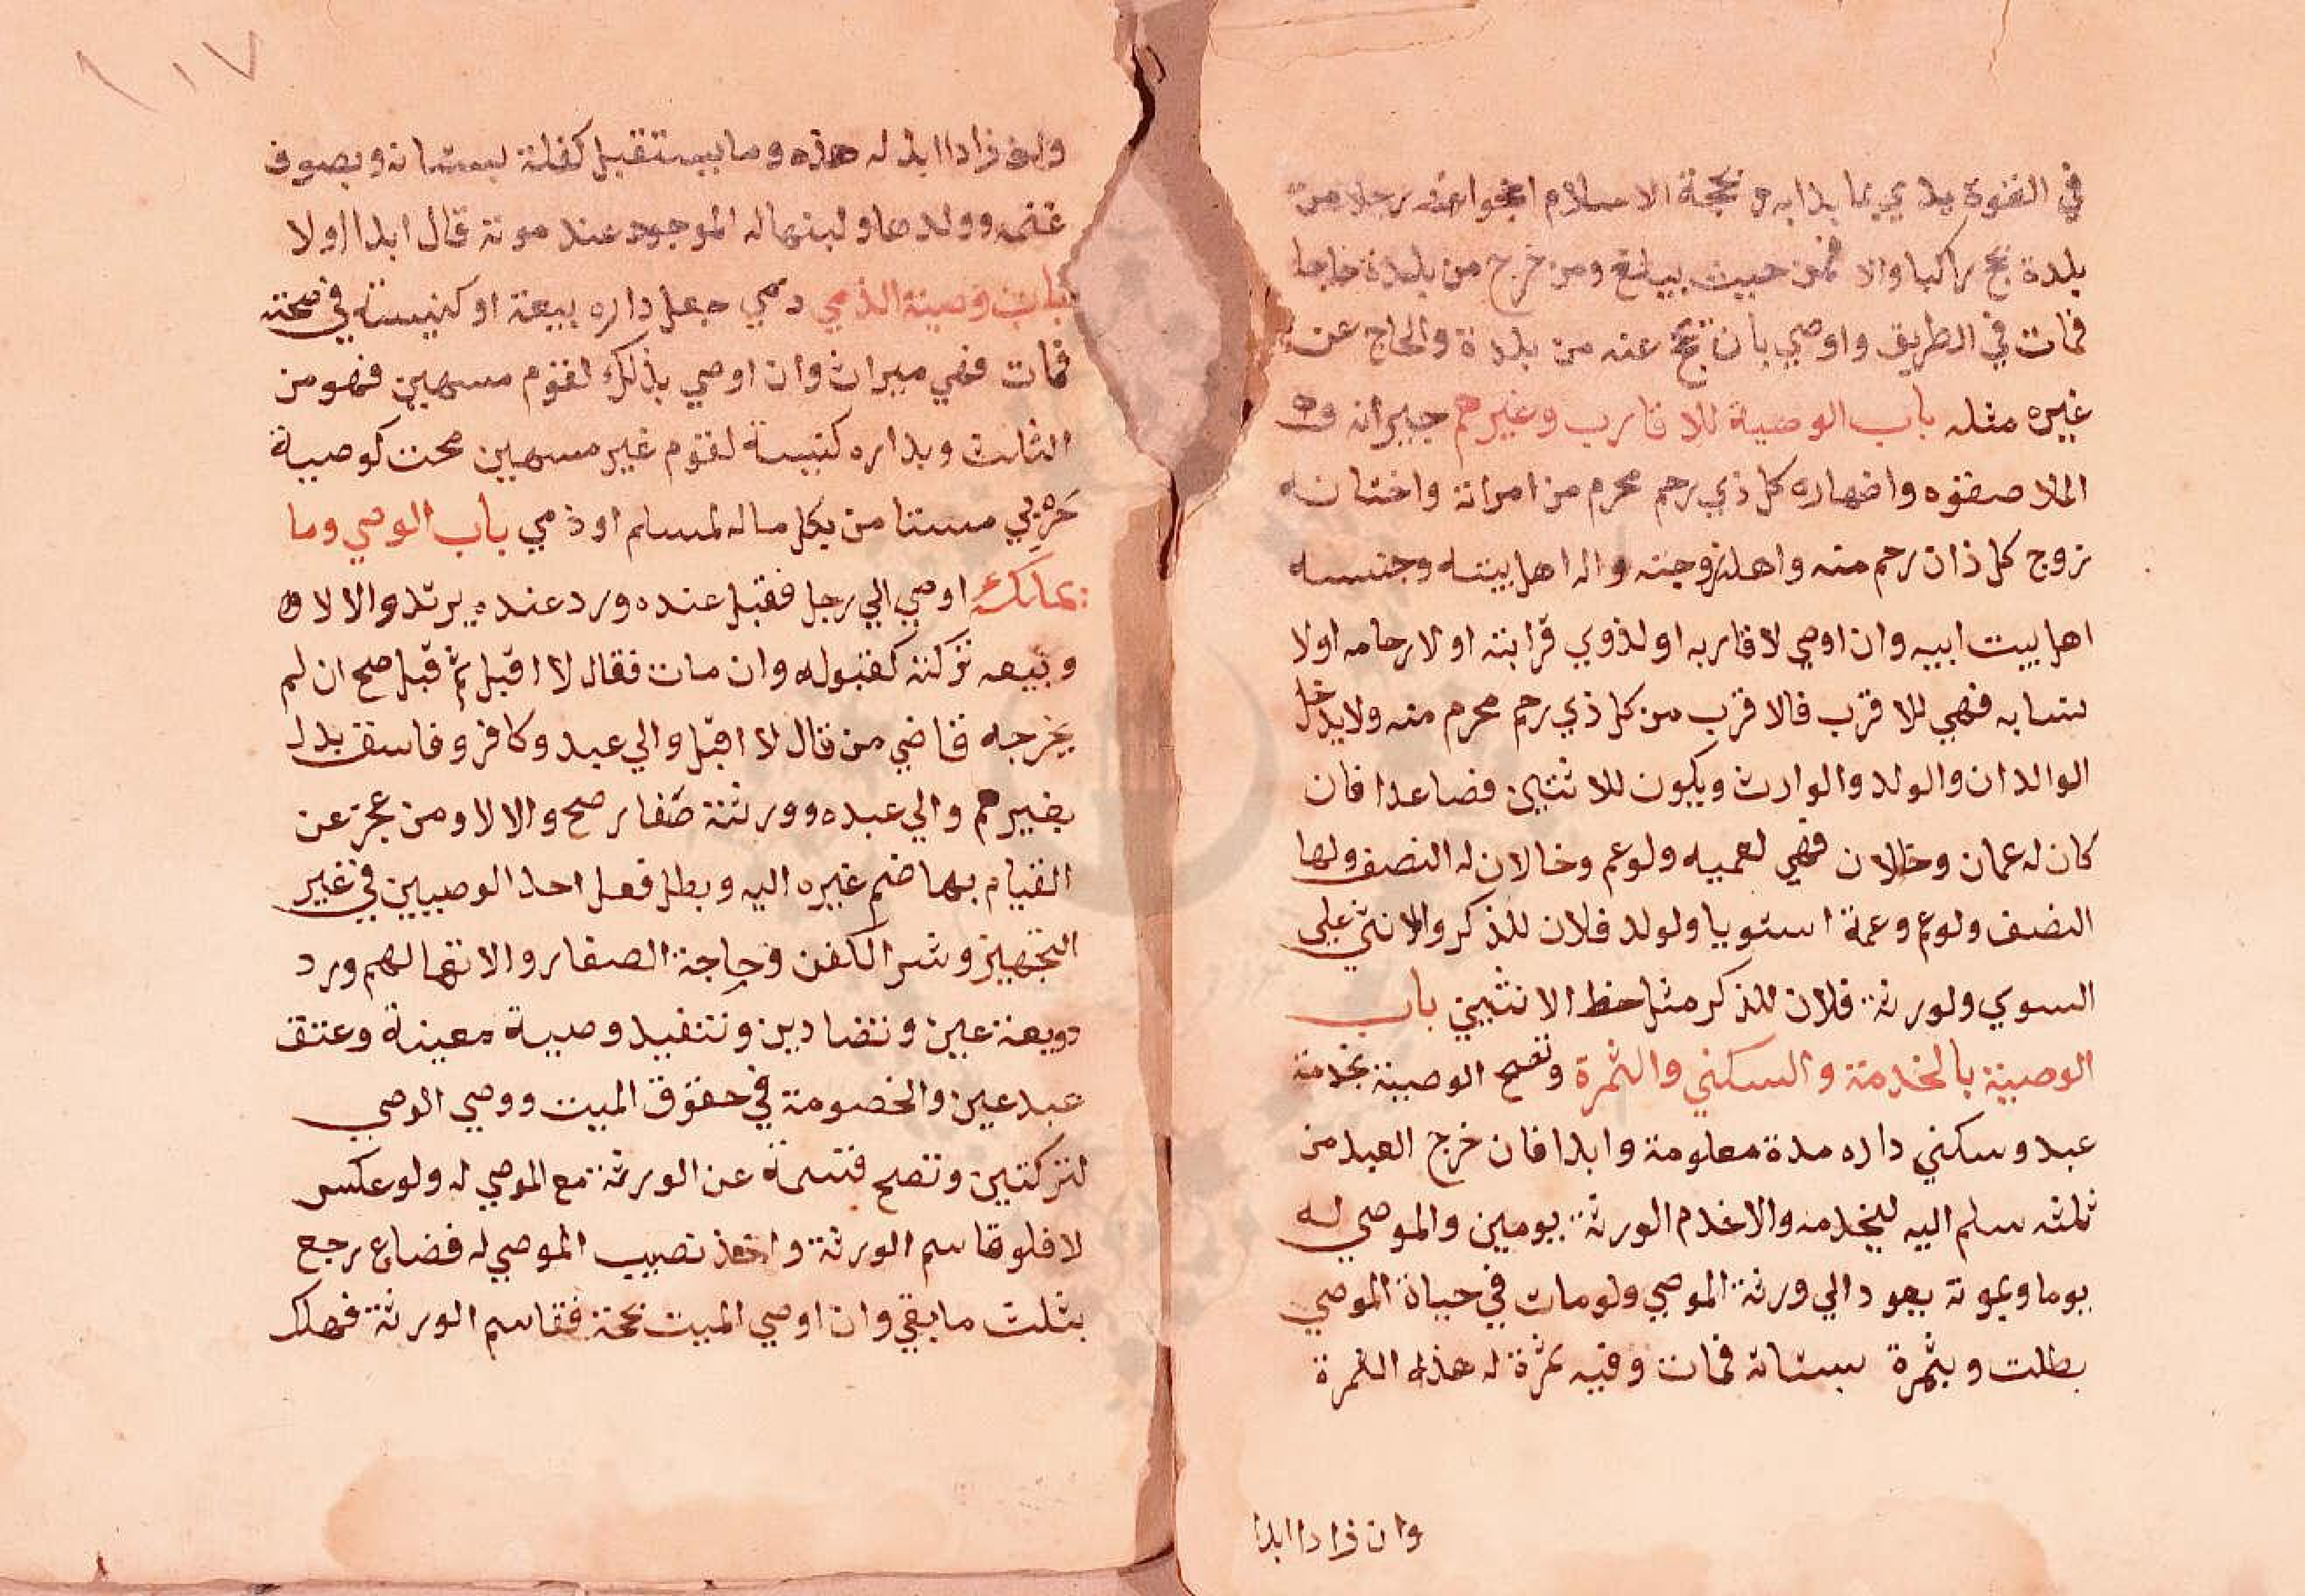 في القوة بدي بما بدا به و بحجة الاسلام احجوا عنه رجلا من
بلدة يحج راكبا والا فمن حيث يبلغ ومن خرج من بلدة حاجا
فمات في الطريق واوصي بان يحج عنه من بلدة والحاج عن
غيره مثله باب الوصية للاقارب وغيرهم جيرانه
الملاصقوه واصهاره كل ذي رحم محرم من امراته واختانه
زوج كل ذات رحم منه واهله زوجته واله اهل بيته وجنسه
اهل بيت ابيه وان اوصي لاقاربه او لذوي قرابته او لارحامه اولا
نسابه فهي للاقرب فالاقرب من كل ذي رحم محرم منه ولا يدخل
الوالدان والولد والوارث ويكون للاثنين فصاعدا فان
كان له عمان وخالان فهي لعميه ولو عم وخالان له النصف ولها
النصف ولو عم وعمة استويا ولولد فلان للذكر والانثي علي
السوي ولورثة فلان للذكر مثل حظ الانثيين باب
الوصية بالخدمة والسكني والثمرة وتصح الوصية بخدمة
عبد وسكني داره مدة معلومة وابدا فان خرج العبد من
ثلثه سلم اليه لليخدمه والا خدم الورثة يومين والموصي له
يوما وبموته يعود الي ورثة الموصي ولو مات في حياة الموصي
بطلت وبثمرة بستانه فمات وفيه ثمرة له هذه الثمرة
وان زاد ابدا
١١٧
وان زاد ابدا له هذه وما يستقبل كغلة بستانه وبصوف
غنمه وولدها ولبنها له الموجود عند موته قال ابدا اولا
باب وصية الذمي ذمي جعل داره بيعة او كنيسة في صحته
فمات فهي ميراث وان اوصي بذلك لقوم مسمين فهو من
الثلث وبداره كنيسة لقوم غير مسمين صحت كوصية
حربي مستامن بكل ماله لمسلم او ذمي باب الوصي وما
يملك اوصي الي رجل فقبل عنده ورد عنده يرتد والا لا و
وبيعه تركته كقبوله وان مات فقال لا اقبل ثم قبل صح ان لم
يخرجه قاضي من قال لا اقبل والي عبد وكافر وفاسق بدل
بغيرهم والي عبده وورثته صغار صح والا لا ومن عجز عن
القيام بها ضم غيره اليه وبطل فعل احد الوصيين في غير
التجهيز وشر الكفن وحاجة الصغار والاتهاب لهم ورد
وديعة عين وقضا دين وتنفيذ وصية معينة وعتق
عبد عين والخصومة في حقوق الميت ووصي الوصي
لتركتين وتصح قسمة عن الورثة مع الموصي له ولو عكس
لا فلو قاسم الورثة واخذ نصيب الموصي له فضاع رجع
بثلث ما بقي وان اوصي الميت بحجة فقاسم الورثة فهلك